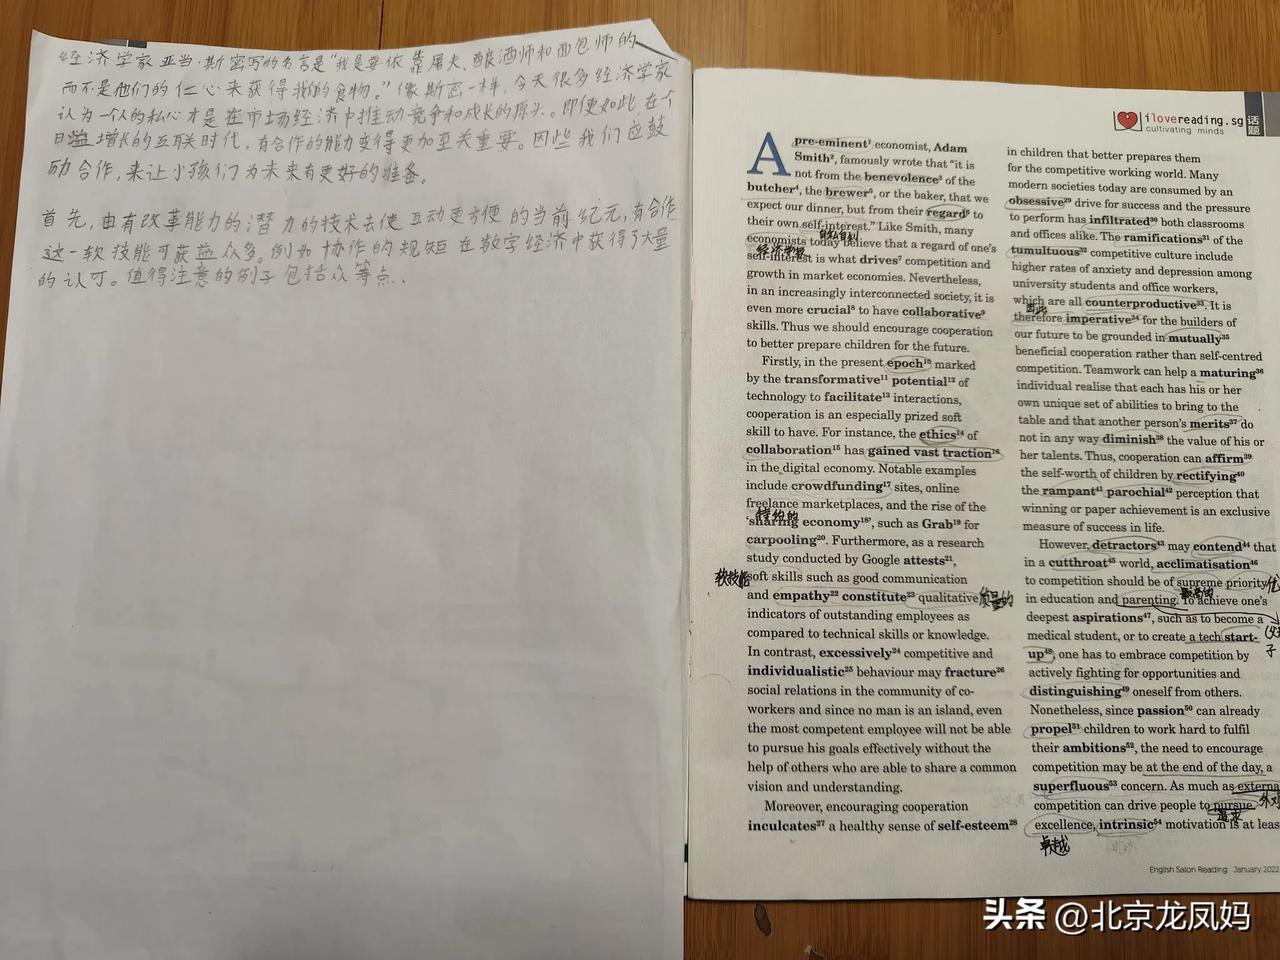 经济学家亚当·斯密写的名言是“我是要依靠屠夫、酿酒师和面包师的
而不是他们的仁心来获得我的食物。”像斯密一样,今天很多经济学家
认为一个人的私心才是在市场经济中推动竞争和成长的源头。即便如此,在一个
日益增长的互联时代,有合作的能力变得更加至关重要。因些我们应鼓
励合作,来让小孩们为未来有更好的准备。
首先,由有改革能力的潜力的技术去使互动更方便的当前纪元,有合作
这一软技能可获益众多。例如协作的规矩在数字经济中获得了大量
的认可。值得注意的例子包括众筹点、
ilovereading.sg
cultivating minds
话题
A pre-eminent¹ economist, Adam
Smith², famously wrote that “it is
not from the benevolence³ of the
butcher⁴, the brewer⁵, or the baker, that we
expect our dinner, but from their regard⁶ to
their own self-interest.” Like Smith, many
自私自利
economists today believe that a regard of one's
经济学家
self-interest is what drives⁷ competition and
growth in market economies. Nevertheless,
in an increasingly interconnected society, it is
even more crucial⁸ to have collaborative⁹
skills. Thus we should encourage cooperation
to better prepare children for the future.
Firstly, in the present epoch¹⁰ marked
by the transformative¹¹ potential¹² of
technology to facilitate¹³ interactions,
cooperation is an especially prized soft
skill to have. For instance, the ethics¹⁴ of
collaboration¹⁵ has gained vast traction¹⁶
in the digital economy. Notable examples
include crowdfunding¹⁷ sites, online
freelance marketplaces, and the rise of the
特约的
‘sharing economy¹⁸’, such as Grab¹⁹ for
carpooling²⁰. Furthermore, as a research
study conducted by Google attests²¹,
软技能
soft skills such as good communication
and empathy²² constitute²³ qualitative
质量的
indicators of outstanding employees as
compared to technical skills or knowledge.
In contrast, excessively²⁴ competitive and
individualistic²⁵ behaviour may fracture²⁶
social relations in the community of co-
workers and since no man is an island, even
the most competent employee will not be able
to pursue his goals effectively without the
help of others who are able to share a common
vision and understanding.
Moreover, encouraging cooperation
inculcates²⁷ a healthy sense of self-esteem²⁸
in children that better prepares them
for the competitive working world. Many
modern societies today are consumed by an
obsessive²⁹ drive for success and the pressure
to perform has infiltrated³⁰ both classrooms
and offices alike. The ramifications³¹ of the
tumultuous³² competitive culture include
higher rates of anxiety and depression among
university students and office workers,
which are all counterproductive³³. It is
因此
therefore imperative³⁴ for the builders of
our future to be grounded in mutually³⁵
beneficial cooperation rather than self-centred
competition. Teamwork can help a maturing³⁶
individual realise that each has his or her
own unique set of abilities to bring to the
table and that another person's merits³⁷ do
not in any way diminish³⁸ the value of his or
her talents. Thus, cooperation can affirm³⁹
the self-worth of children by rectifying⁴⁰
the rampant⁴¹ parochial⁴² perception that
winning or paper achievement is an exclusive
measure of success in life.
However, detractors⁴³ may contend⁴⁴ that
in a cutthroat⁴⁵ world, acclimatisation⁴⁶
to competition should be of supreme priority
最高的
in education and parenting. To achieve one's
deepest aspirations⁴⁷, such as to become a
medical student, or to create a tech start-
up⁴⁸, one has to embrace competition by
actively fighting for opportunities and
distinguishing⁴⁹ oneself from others.
Nonetheless, since passion⁵⁰ can already
propel⁵¹ children to work hard to fulfil
their ambitions⁵², the need to encourage
competition may be at the end of the day, a
superfluous⁵³ concern. As much as external
competition can drive people to pursue
追求
excellence, intrinsic⁵⁴ motivation is at least
卓越
English Salon Reading January 2022
头条 @北京龙凤妈